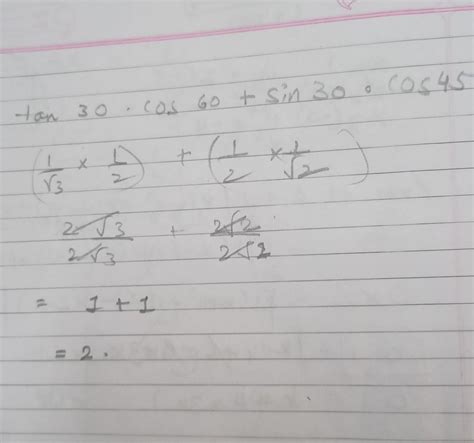 tan 30 . cos 60 + sin 30 . cos 45
(1/√3 × 1/2) + (1/2 × 1/√2)
2√3/2√3 + 2√2/2√2
= 1 + 1
= 2.